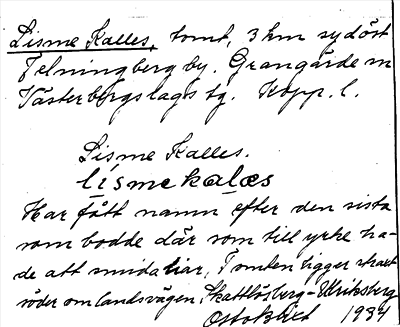 Lisme Kalles, tomt, 3 km sydöst
Felningberg by. Grangärde sn
Västerbergslags tg. Kopp. l.
Lisme Kalles.
lismekalæs
Har fått namn efter den sista
som bodde där som till yrke ha-
de att smida liar, Tomten ligger strax
söder om landsvägen, Skattlösberg-Ulriksberg
Otto Blixt 1934